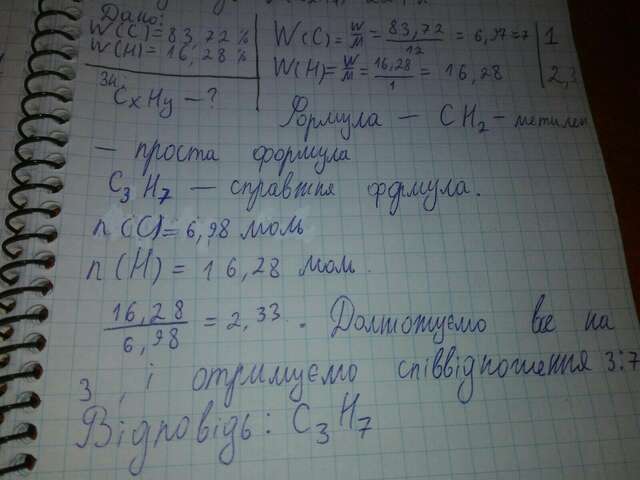 Дано:
W(C)=83,72%
W(H)=16,28%
Зн.
CxHy – ?
W(C)= W/M = 83,72/12 = 6,97=7 | 1
W(H)= W/M = 16,28/1 = 16,28 | 2,3
Формула – CH2 – метилен
– проста формула
C3H7 – справжня формула.
n(C)=6,98 моль
n(H)=16,28 моль.
16,28/6,98 = 2,33. Домножуємо все на
3, і отримуємо співвідношення 3:7
Відповідь: C3H7